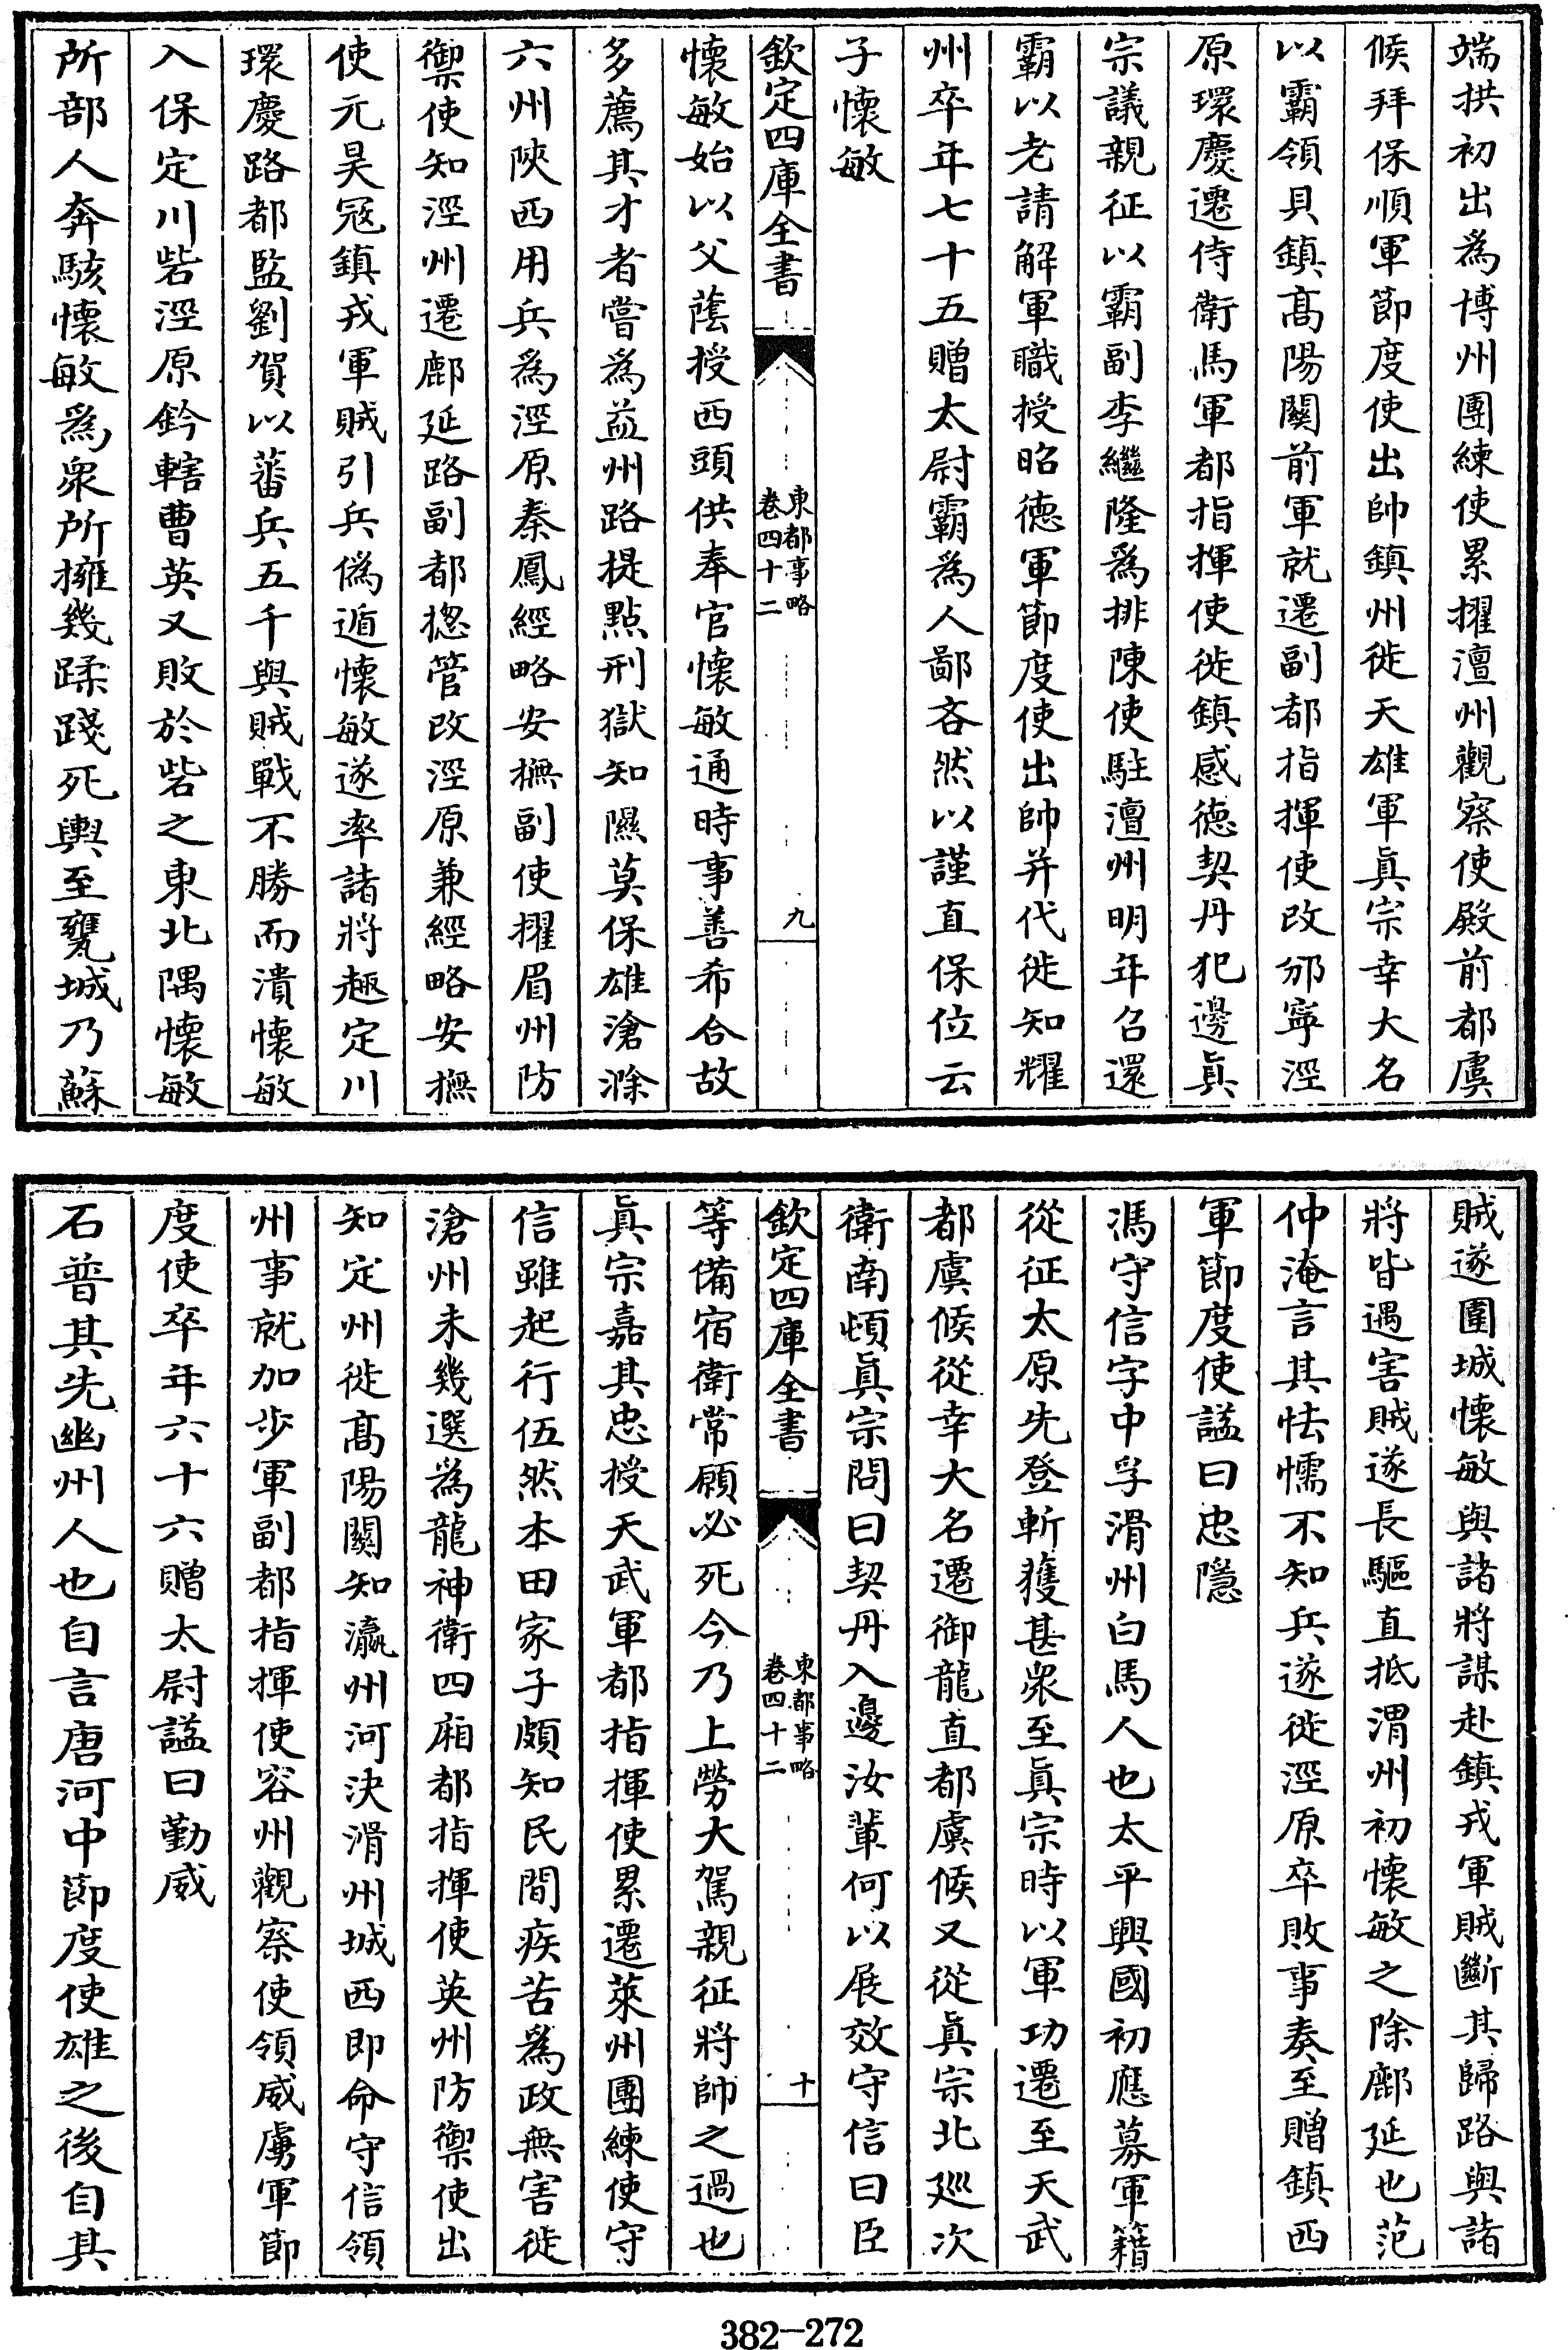 端拱初出為博州團練使累擢澶州觀察使殿前都虞
候拜保順軍節度使出帥鎮州徙天雄軍真宗幸大名
以霸領具鎮髙陽關前軍就遷副都指揮使改邠寧涇
原環慶遷侍衛馬軍都指揮使徙鎮感徳契丹犯邊真
宗議親征以霸副李繼隆為排陳使駐澶州明年召還
霸以老請解軍職授昭徳軍節度使出帥并代徙知耀
州卒年七十五贈太尉霸為人鄙吝然以謹直保位云
子懷敏
欽定四庫全書
東都事略
卷四十二
九
懷敏始以父蔭授西頭供奉官懷敏通時事善希合故
多薦其才者嘗為益州路提點刑獄知隰莫保雄滄滁
六州陜西用兵為涇原秦鳳經略安撫副使擢眉州防
禦使知涇州遷鄜延路副都揔管改涇原兼經略安撫
使元昊冦鎮戎軍賊引兵偽遁懷敏遂率諸將趣定川
環慶路都監劉賀以蕃兵五千與賊戰不勝而潰懷敏
入保定川砦涇原鈐轄曹英又敗於砦之東北隅懷敏
所部人奔駭懷敏為衆所擁幾蹂踐死輿至甕城乃蘇
賊遂圍城懷敏與諸將謀赴鎮戎軍賊斷其歸路與諸
將皆遇害賊遂長驅直抵渭州初懷敏之除鄜延也范
仲淹言其怯懦不知兵遂徙涇原卒敗事奏至贈鎮西
軍節度使諡曰忠隠
馮守信字中孚滑州白馬人也太平興國初應募軍籍
從征太原先登斬獲甚衆至真宗時以軍功遷至天武
都虞候從幸大名遷御龍直都虞候又從真宗北廵次
衛南頓真宗問曰契丹入邊汝輩何以展效守信曰臣
欽定四庫全書
東都事略
卷四十二
十
等備宿衛常願必死今乃上勞大駕親征將帥之過也
真宗嘉其忠授天武軍都指揮使累遷萊州團練使守
信雖起行伍然本田家子頗知民間疾苦為政無害徙
滄州未幾選為龍神衛四廂都指揮使英州防禦使出
知定州徙髙陽關知瀛州河決滑州城西即命守信領
州事就加步軍副都指揮使容州觀察使領威虜軍節
度使卒年六十六贈太尉諡曰勤威
石普其先幽州人也自言唐河中節度使雄之後自其
382-272